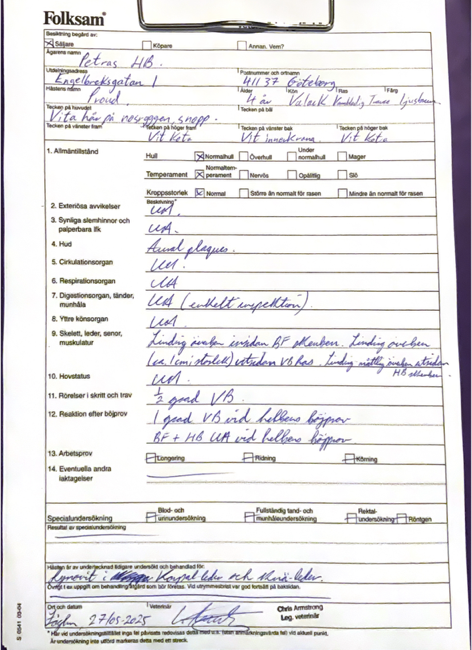 Folksam
Besiktning begärd av:
Säljare Köpare Annan. Vem?
Ägarens namn
Petras HB.
Utdelningsadress Postnummer och ortnamn
Engelbreksgatan 1 41137 Göteborg
Hästens namn Ålder Kön Ras Färg
Proud 4 år Valack Varmblodig Travare Ljusbrun
Tecken på huvud Tecken på bål
Vita hår på nosryggen, snopp.
Tecken på vänster fram Tecken på höger fram Tecken på vänster bak Tecken på höger bak
Vit kota Vit innerkrona Vit Kota
1. Allmäntillstånd
Hull Normalhull Överhull Under normalhull Mager
Temperament Normaltemperament Nervös Opålitlig Slö
Kroppsstorlek Normal Större än normalt för rasen Mindre än normalt för rasen
Beskrivning*
2. Exteriöra avvikelser UA.
3. Synliga slemhinnor och
palperbara lfk UA.
4. Hud Aural plaques.
5. Cirkulationsorgan UA.
6. Respirationsorgan UA
7. Digestionsorgan, tänder,
munhåla UA (enkelt inspektion).
8. Yttre könsorgan UA.
9. Skelett, leder, senor,
muskulatur
Lindrig insidan BF skenben. Lindrig
(ca. 1 cm i storlek) utsidan VB has. Lindrig utsidan
HB
10. Hovstatus UA.
11. Rörelser i skritt och trav ½ grad VB.
12. Reaktion efter böjprov 1 grad VB vid helbens böjprov
BF + HB UA vid helbens böjprov
13. Arbetsprov Longering Ridning Körning
14. Eventuella andra
iakttagelser
Specialundersökning Blod- och urinundersökning Fullständig tand- och munhåleundersökning Rektalundersökning Röntgen
Resultat av specialundersökning
Hästen är av undertecknad tidigare undersökt och behandlad för:
Synovit i Karpal leder och leder.
Övrigt t ex uppgift om behandling/åtgärd som bör företas. Vid utrymmesbrist var god fortsätt på baksidan.
Ort och datum Veterinär Chris Armstrong
27/05-2025 Leg. veterinär
S 0541 03-04